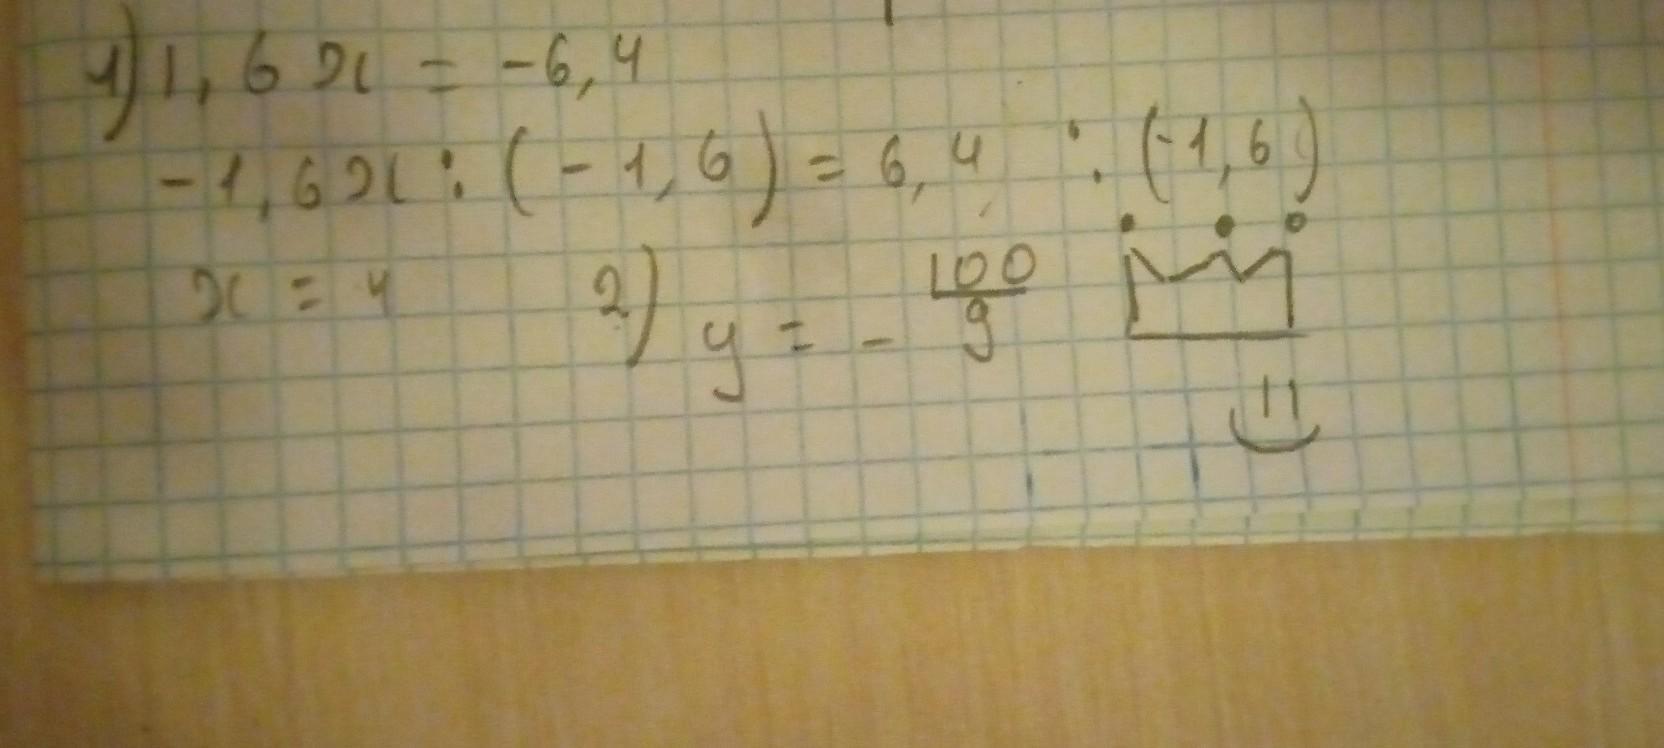 1) 1,6x = -6,4
-1,6x : (-1,6) = 6,4 : (-1,6)
x = 4 2) y = - 100/9